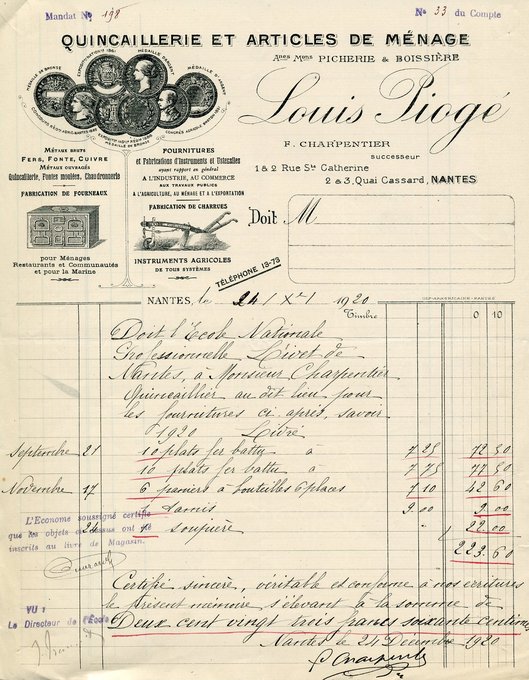 Mandat No 198
No 33 du Compte
QUINCAILLERIE ET ARTICLES DE MÉNAGE
Ancnes Mons PICHERIE & BOISSIÈRE
Louis Piogé
F. CHARPENTIER
SUCCESSEUR
1 & 2 Rue Ste Catherine
2 & 3, Quai Cassard, NANTES
MÉDAILLE DE BRONZE
MÉDAILLE D'ARGENT
MÉTAUX BRUTS
FERS, FONTE, CUIVRE
MÉTAUX OUVRAGÉS
Quincaillerie, Fontes moulées, Chaudronnerie
FABRICATION DE FOURNEAUX
pour Ménages
Restaurants et Communautés
et pour la Marine
FOURNITURES
et Fabrications d'Instruments et Ustensiles
ayant rapport en général
A L'INDUSTRIE, AU COMMERCE
AUX TRAVAUX PUBLICS
A L'AGRICULTURE, AU MÉNAGE ET A L'EXPORTATION
FABRICATION DE CHARRUES
INSTRUMENTS AGRICOLES
DE TOUS SYSTÈMES
TÉLÉPHONE 13-73
Doit M
NANTES, le 24 / Xbre / 1920
Timbre 0 10
Doit l'École Nationale
Professionnelle Livet de
Nantes, à Monsieur Charpentier
Quincaillier, au dit lieu pour
les fournitures ci après, savoir
1920 Livré
Septembre 21 10 plats fer battu à 7 25 72 50
10 plats fer battu à 7 75 77 50
Novembre 17 6 paniers à bouteilles 6 places 7 10 42 60
tamis 9.00 9.00
24 soupière 22.00
223.60
L'Econome soussigné certifie
que les objets ci-dessus ont été
inscrits au livre de Magasin.
Certifié sincère, véritable et conforme à nos écritures
le présent mémoire s'élevant à la somme de
Deux cent vingt trois francs soixante centimes
Nantes le 24 Décembre 1920
VU :
Le Directeur de l'École
F Charpentier